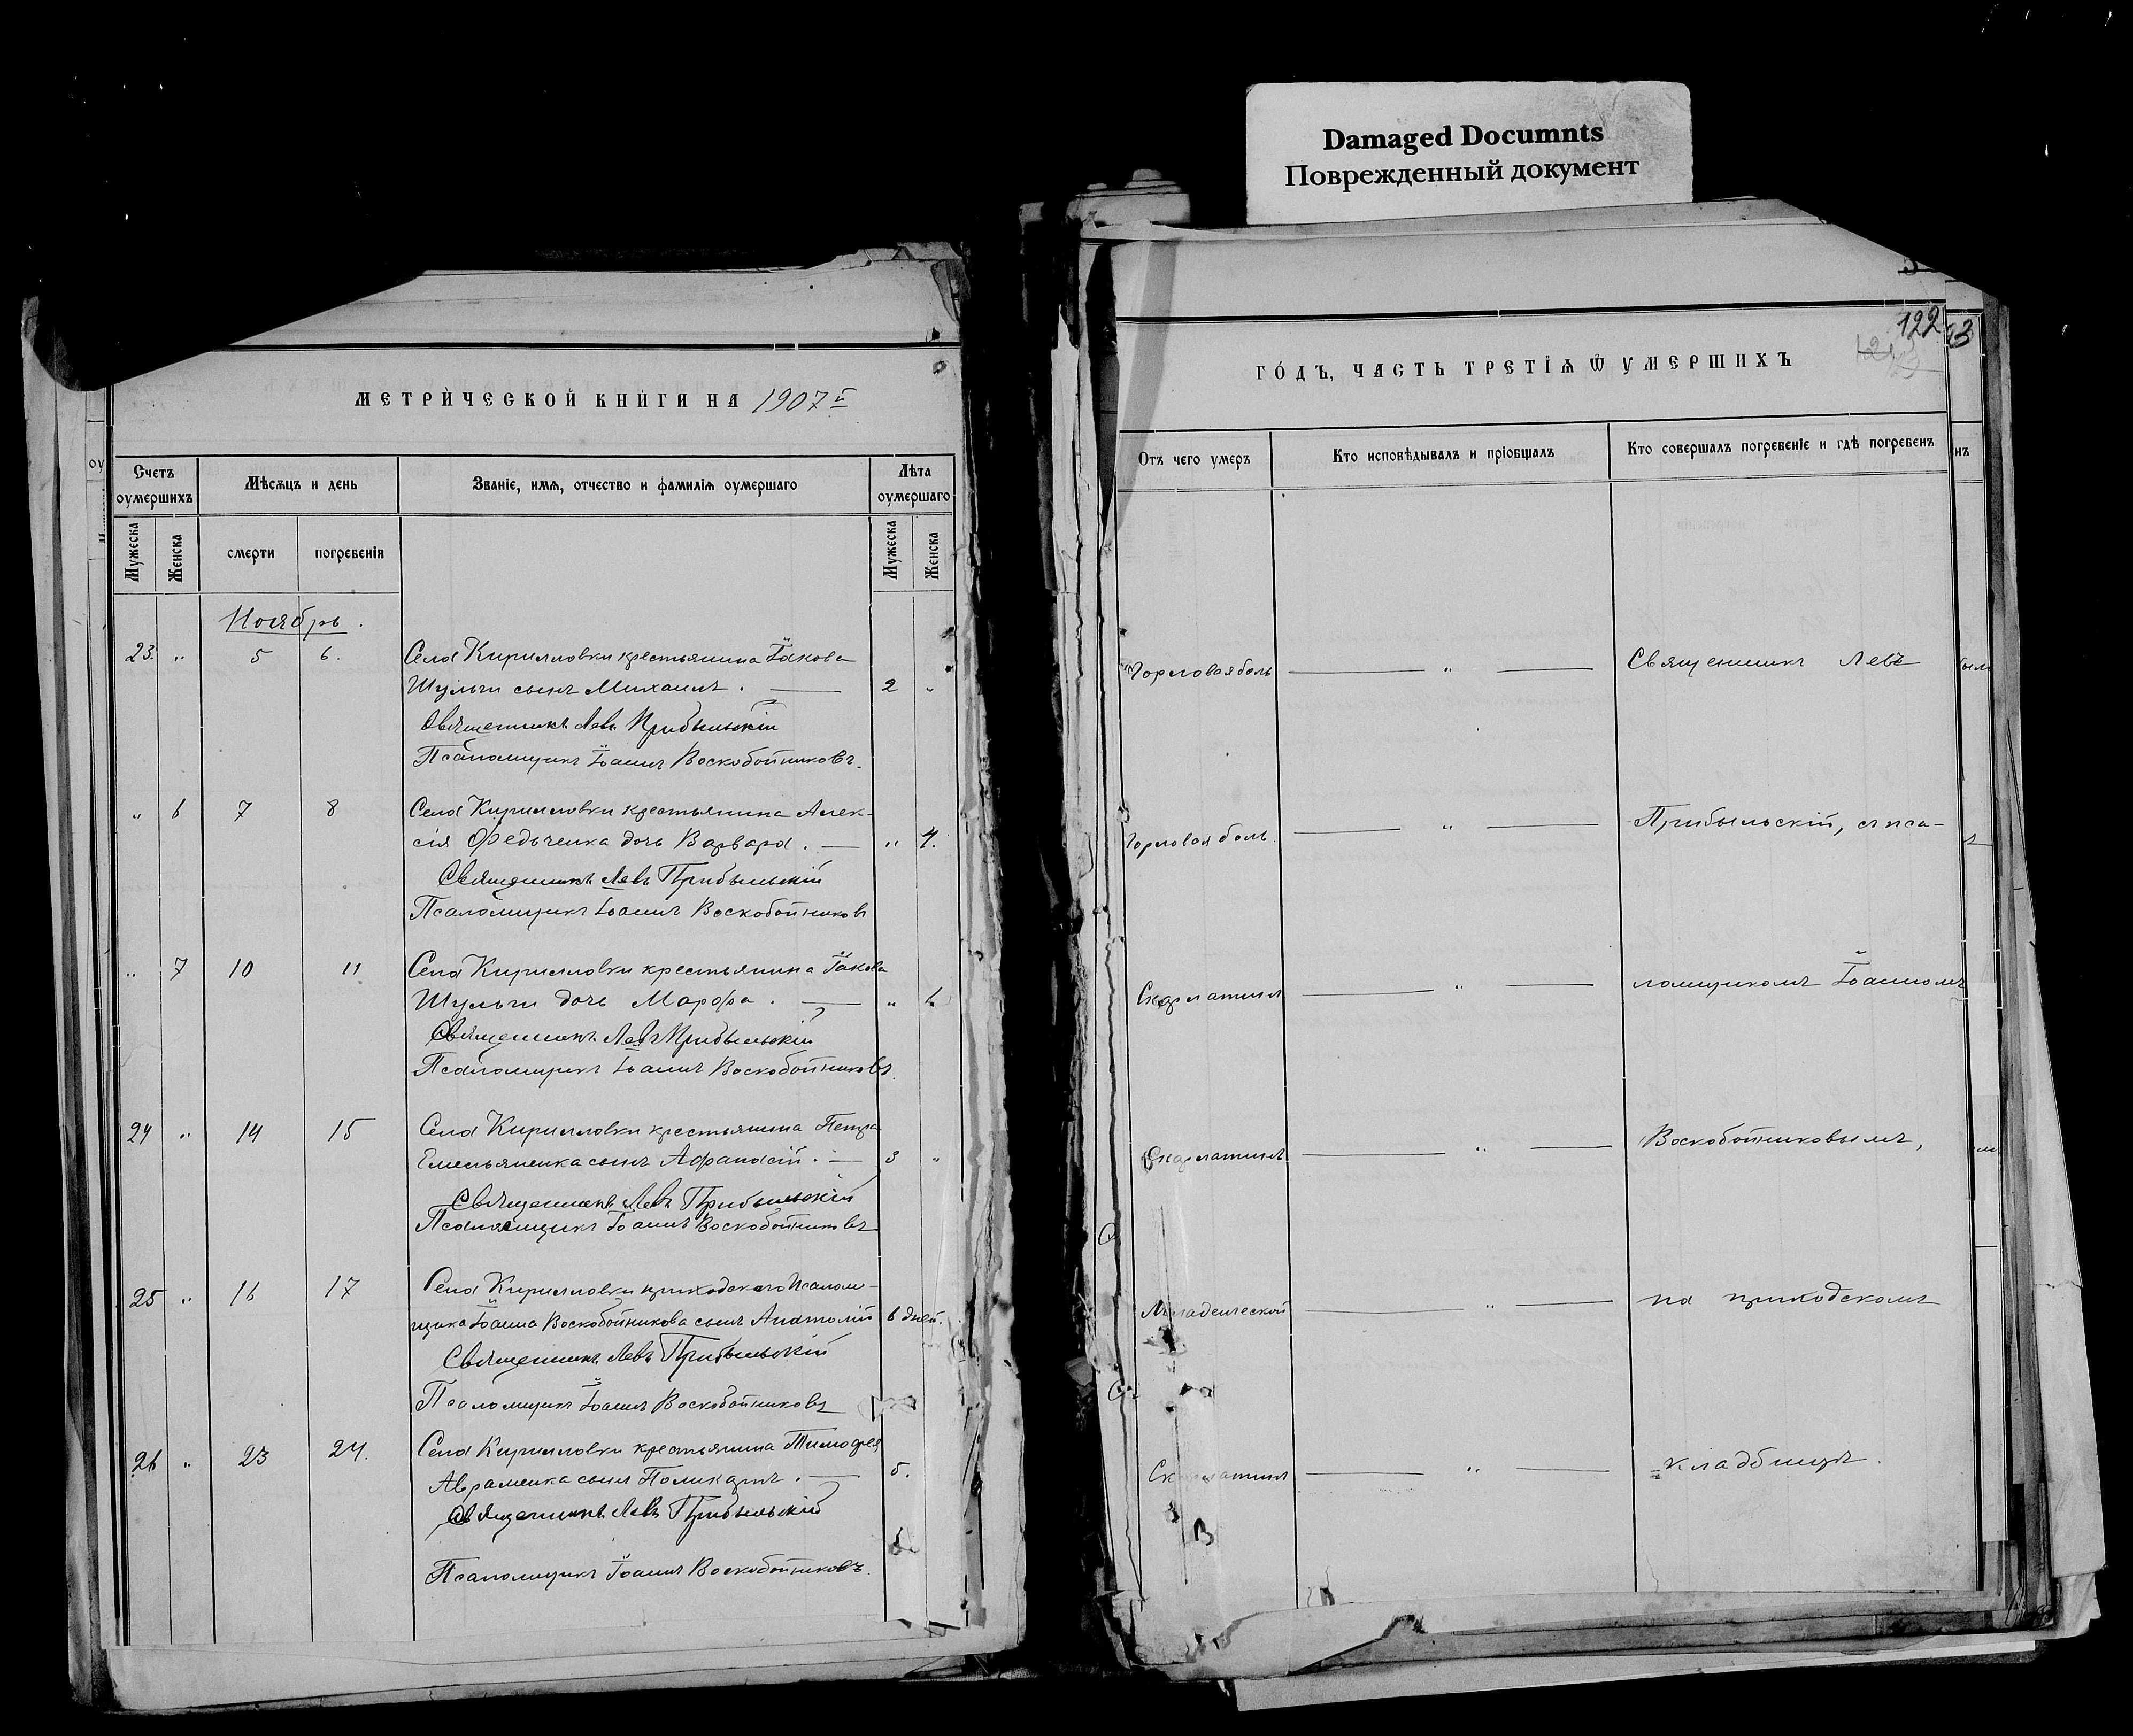 Damaged Documnts
Поврежденный документ
МЕТРИ́ЧЕСКОЙ КНИ́ГИ НА 1907й
Счетъ оумершихъ
Мѣсѧцъ и день
Званіе, имѧ, отчество и фамиліѧ оумершаго
Лѣта оумершаго
Мужеска
Женска
смерти
погребенія
Мужеска
Женска
Ноябрь.
23. „ 5 6. Села Кирилловки крестьянина Іакова
Шульги сынъ Михаилъ. — 2 „
Священникъ Левъ Прибыльскій
Псаломщикъ Іоаннъ Воскобойниковъ.
„ 6 7 8 Села Кирилловки крестьянина Алек-
сія Федченка дочь Варвара. — „ 4.
Священникъ Левъ Прибыльскій
Псаломщикъ Іоаннъ Воскобойниковъ
„ 7 10 11 Села Кирилловки крестьянина Іакова
Шульги дочь Марфа. — „ 6
Священникъ Левъ Прибыльскій
Псаломщикъ Іоаннъ Воскобойниковъ.
24 „ 14 15 Села Кирилловки крестьянина Петра
Емельяненка сынъ Афанасій. — 3 „
Священникъ Левъ Прибыльскій
Псаломщикъ Іоаннъ Воскобойниковъ
25 „ 16 17 Села Кирилловки приходскаго Псалом-
щика Іоанна Воскобойникова сынъ Анатолій 6 дней.
Священникъ Левъ Прибыльскій
Псаломщикъ Іоаннъ Воскобойниковъ
26 „ 23 24. Села Кирилловки крестьянина Тимофея
Авраменка сынъ Поликарпъ. — 5.
Священникъ Левъ Прибыльскій
Псаломщикъ Іоаннъ Воскобойниковъ.
122
ГО́ДЪ, ЧАСТЬ ТРЕТІѦ Ѿ УМЕРШИХЪ
Отъ чего умеръ
Кто исповѣдывалъ и пріобщалъ
Кто совершалъ погребеніе и гдѣ погребенъ
Горловая боль — „ — Священникъ Левъ
Горловая боль. — „ — Прибыльскій, съ пса-
Скарлатина — „ — ломщикомъ Іоанномъ
Скарлатина — „ — Воскобойниковымъ,
Младенческой — „ — на приходскомъ
Скарлатина — „ — кладбищѣ.